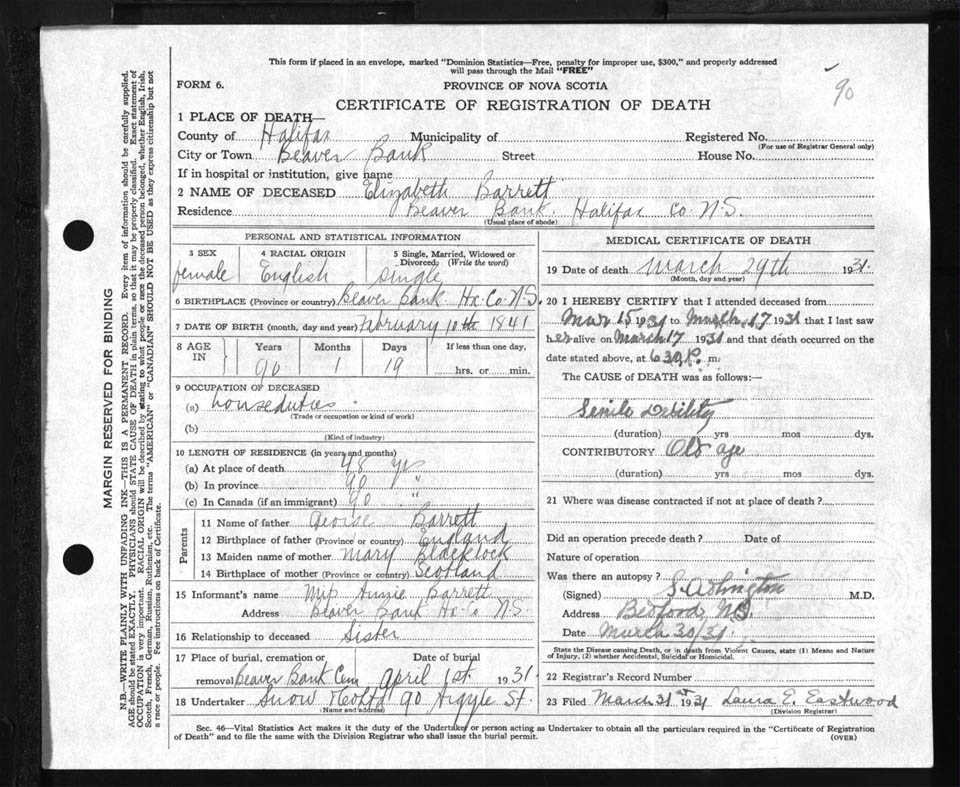 This form if placed in an envelope, marked "Dominion Statistics—Free, penalty for improper use, $300," and properly addressed
will pass through the Mail "FREE"
90
FORM 6.
PROVINCE OF NOVA SCOTIA
CERTIFICATE OF REGISTRATION OF DEATH
1 PLACE OF DEATH—
County of Halifax Municipality of Registered No.
(For use of Registrar General only)
City or Town Beaver Bank Street House No.
If in hospital or institution, give name
2 NAME OF DECEASED Elizabeth Barrett
Residence Beaver Bank. Halifax Co. N.S.
(Usual place of abode)
PERSONAL AND STATISTICAL INFORMATION
3 SEX 4 RACIAL ORIGIN 5 Single, Married, Widowed or
Divorced (Write the word)
female English single
6 BIRTHPLACE (Province or country) Beaver Bank Hx. Co. N.S.
7 DATE OF BIRTH (month, day and year) February 10th 1841
8 AGE IN Years Months Days If less than one day,
90 1 19 hrs. or min.
9 OCCUPATION OF DECEASED
(a) house duties
(Trade or occupation or kind of work)
(b)
(Kind of industry)
10 LENGTH OF RESIDENCE (in years and months)
(a) At place of death 48 yrs
(b) In province 90 "
(c) In Canada (if an immigrant) 90 "
Parents
11 Name of father George Barrett
12 Birthplace of father (Province or country) England
13 Maiden name of mother Mary Blacklock
14 Birthplace of mother (Province or country) Scotland
15 Informant's name Miss Annie Barrett
Address Beaver Bank Hx. Co. N.S.
16 Relationship to deceased Sister
17 Place of burial, cremation or Date of burial
removal Beaver Bank Cem April 1st. 1931.
18 Undertaker Snow & Co Ltd 90 Argyle St.
(Name and address)
MEDICAL CERTIFICATE OF DEATH
19 Date of death March 29th 1931.
(Month, day and year)
20 I HEREBY CERTIFY that I attended deceased from
Mar 15 1931 to March 17 1931 that I last saw
her alive on March 17 1931 and that death occurred on the
date stated above, at 6 30 P. m.
The CAUSE of DEATH was as follows:—
Senile Debility
(duration) yrs mos dys.
CONTRIBUTORY Old age
(duration) yrs mos dys.
21 Where was disease contracted if not at place of death?
Did an operation precede death? Date of
Nature of operation
Was there an autopsy?
(Signed) M.D.
Address Bedford, N.S.
Date March 30/31.
State the Disease causing Death, or in death from Violent Causes, state (1) Means and Nature
of Injury, (2) whether Accidental, Suicidal or Homicidal.
22 Registrar's Record Number
23 Filed March 31st 1931 Laura E. Eastwood
(Division Registrar)
Sec. 46—Vital Statistics Act makes it the duty of the Undertaker or person acting as Undertaker to obtain all the particulars required in the "Certificate of Registration
of Death" and to file the same with the Division Registrar who shall issue the burial permit.
(OVER)
MARGIN RESERVED FOR BINDING
N.B.—WRITE PLAINLY WITH UNFADING INK—THIS IS A PERMANENT RECORD. Every item of information should be carefully supplied.
AGE should be stated EXACTLY. PHYSICIANS should STATE CAUSE OF DEATH in plain terms, so that it may be properly classified. Exact statement of
OCCUPATION is very important. RACIAL ORIGIN will be described by stating to what people or race the deceased person belonged, whether English, Irish,
Scotch, French, German, Russian, Ruthenian, etc. The terms "AMERICAN" or "CANADIAN" SHOULD NOT BE USED as they express citizenship but not
a race or people. See instructions on back of Certificate.